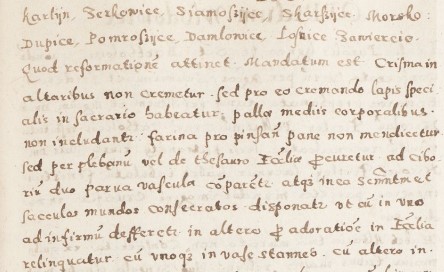 Karlin, Zerkowice, Siamoszijce, Skarszijce. Morsko.
Dupice, Pomroszijce, Damlowice Losnice Zawiercie.
Quod reformatione attinet. Mandatum est Crisma in
altaribus non cremetur. sed pro eo cremando lapis speci
alis in sacrario habeatur. palla mediis corporalibus.
non includantr. farina pro pinsan pane non mendicetur
sed per plebanu vel de thesauro Eccliae pcuretur. ad cibo
riu duo parua vascula comparetr. atqz in ea
sacculos mundos consecratos disponatr vt cu in vno
ad infirmu defferetr in altero p adoratioe in Ecclia
relinquatur. cu vnoqz in vase stanneo. cu altero in.